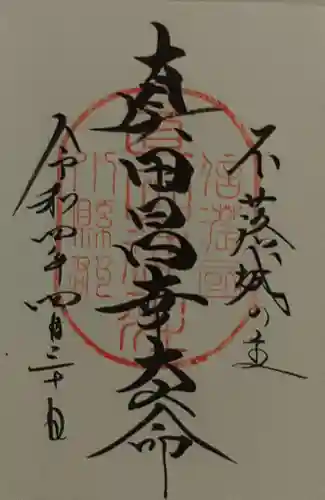 不落城の主
真田昌幸大命
令和四年四月三十日